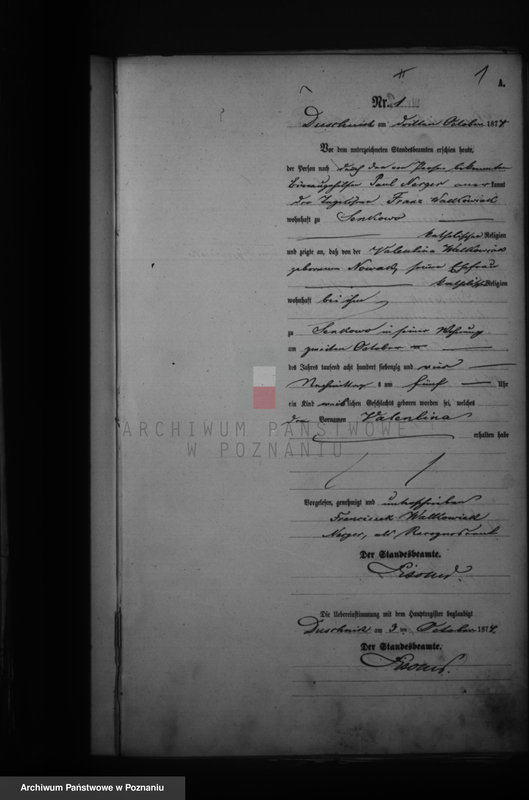 1
A.
Nr. 1
Duschnik am dritten October 1874
Vor dem unterzeichneten Standesbeamten erschien heute,
der Person nach durch den der Person bekannten
Bureaugehilfen Paul Nerger anerkannt
der Franz Walkowiak
wohnhaft zu Senkowo
katholischer Religion
und zeigte an, daß von der Valentina Walkowiak
geborenen Nowak, seine Ehefrau
katholischer Religion
wohnhaft bei ihm
zu Senkowo in seiner Wohnung
am zweiten October
des Jahres tausend acht hundert siebenzig und vier
Nachmittag s um fünf Uhr
ein Kind weiblichen Geschlechts geboren worden sei, welches
den Vornamen Valentina
erhalten habe
ARCHIWUM PAŃSTWOWE
W POZNANIU
Vorgelesen, genehmigt und unterschrieben
Franciszek Walkowiak
Nerger, als Recognoscent
Der Standesbeamte.
Die Uebereinstimmung mit dem Hauptregister beglaubigt
Duschnik am 3 ten October 1874.
Der Standesbeamte.
Archiwum Państwowe w Poznaniu